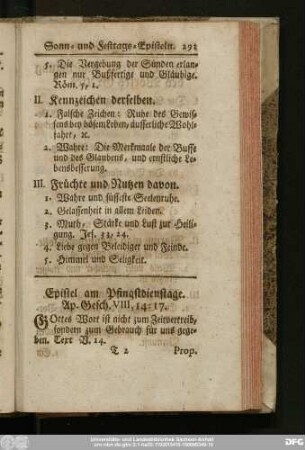 Sonn- und Festtags-Episteln. 291
5. Die Vergebung der Sünden erlan-
gen nur Bußfertige und Gläubige.
Röm. 5, 1.
II. Kennzeichen derselben.
1. Falsche Zeichen: Ruhe des Gewis-
sens bey bösem Leben, äusserliche Wohl-
fahrt, ꝛc.
2. Wahre: Die Merkmaale der Busse
und des Glaubens, und ernstliche Le-
bensbesserung.
III. Früchte und Nutzen davon.
1. Wahre und süsseste Seelenruhe.
2. Gelassenheit in allem Leiden.
3. Muth, Stärke und Lust zur Heili-
gung. Jes. 33, 24.
4. Liebe gegen Beleidiger und Feinde.
5. Himmel und Seligkeit.
Epistel am Pfingstdienstage.
Ap. Gesch. VIII, 14-17.
GOttes Wort ist nicht zum Zeitvertreib,
sondern zum Gebrauch für uns gege-
ben. Text V. 14.
T 2 Prop.
Universitäts- und Landesbibliothek Sachsen-Anhalt